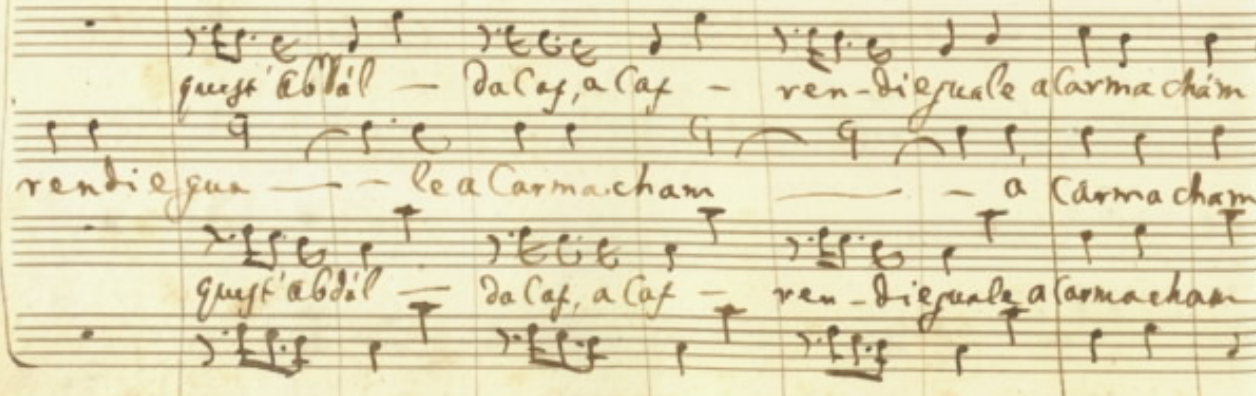 quest' Abdàl — da Caf, a Caf — ren-di eguale a Carmachám
rendi egua — — le a Carmacham — — a Carmacham
quest' abdàl — da Caf, a Caf — ren-di eguale a Carmacham